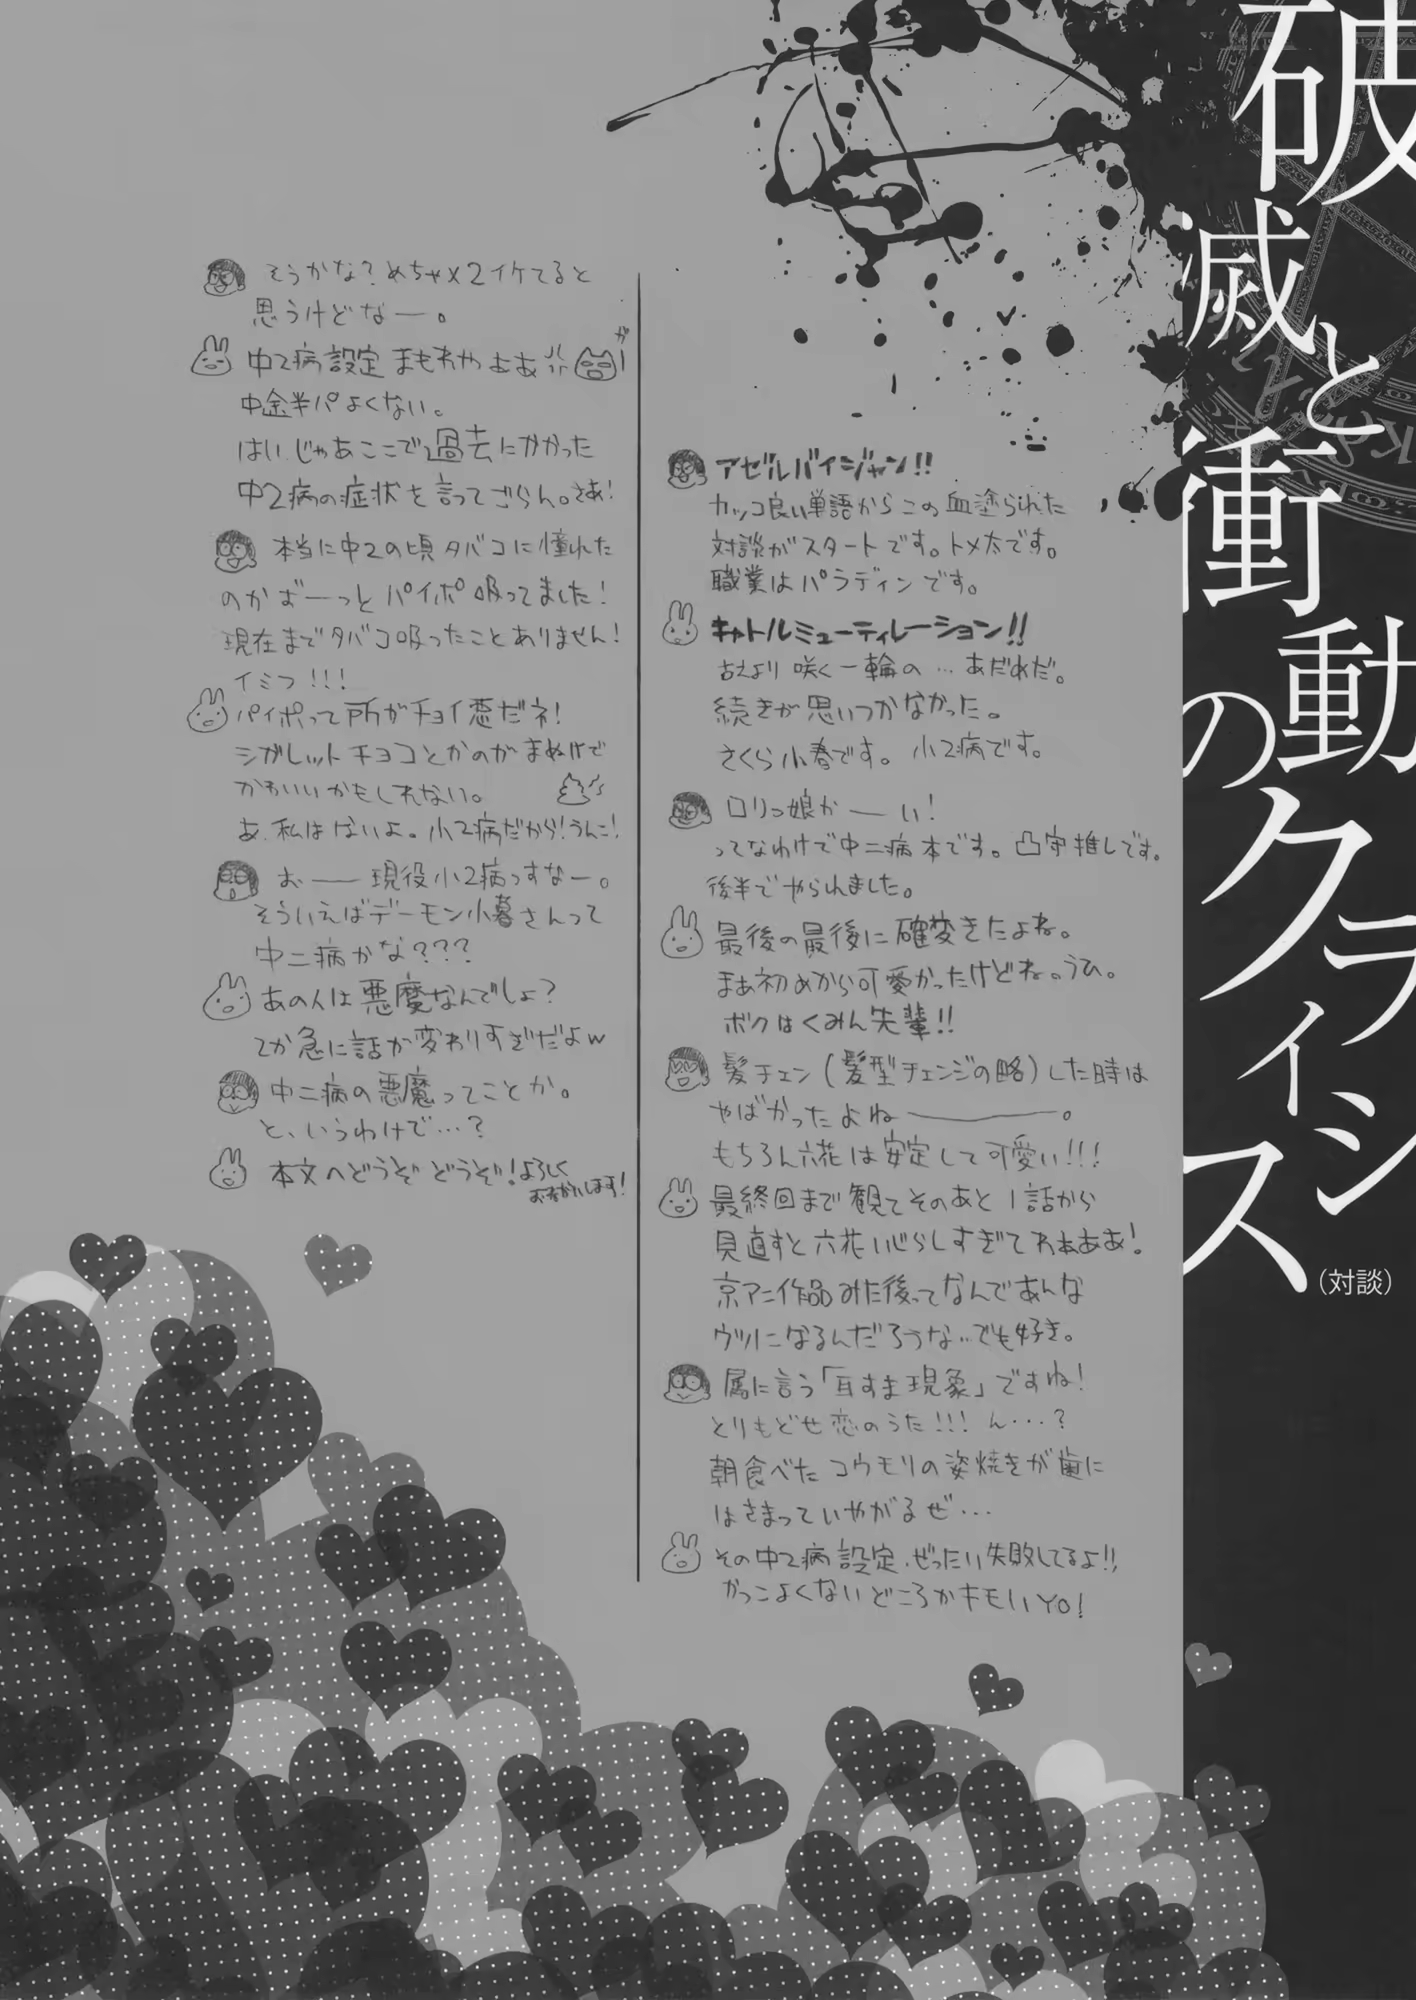 破滅と衝動のクライシス
（対談）
アゼルバイジャン!!
カッコ良い単語からこの血塗られた
対談がスタートです。トメ太です。
職業はパラディンです。
キャトルミューティレーション!!
古えより咲く一輪の…あだめだ。
続きが思いつかなかった。
さくら小春です。小2病です。
ロリっ娘かーい!
ってなわけで中二病本です。凸守推しです。
後半でやられました。
最後の最後に確変きたよね。
まぁ初めから可愛かったけどね。うひ。
ボクはくみん先輩!!
髪チェン(髪型チェンジの略)した時は
やばかったよねー。
もちろん六花は安定して可愛い!!!
最終回まで観てそのあと1話から
見直すと六花いじらしすぎてわぁああ!
京アニ作品みた後ってなんであんな
ウツになるんだろうな…でも好き。
属に言う「耳すま現象」ですね!
とりもどせ恋のうた!!! ん…?
朝食べたコウモリの姿焼きが歯に
はさまっていやがるぜ…
その中2病設定、ぜったい失敗してるよ!!
かっこよくないどころかキモいYO!
そうかな?めちゃメ2イケてると
思うけどなー。
中2病設定まもれやぁぁ
ガー
中途半パよくない。
はいじゃあここで過去にかかった
中2病の症状を言ってごらん。さあ!
本当に中2の頃タバコに憧れた
のかずーっとパイポ吸ってました!
現在までタバコ吸ったことありません!
イミフ!!!
パイポって所がチョイ悪だネ!
シガレットチョコとかのがまぬけで
かわいいかもしれない。
あ、私はないよ。小2病だから!うんこ!
おー現役小2病っすなー。
そういえばデーモン小暮さんって
中二病かな???
あの人は悪魔なんでしょ?
てか急に話が変わりすぎだよw
中二病の悪魔ってことか。
と、いうわけで…?
本文へどうぞどうぞ!よろしく
おねがいします!